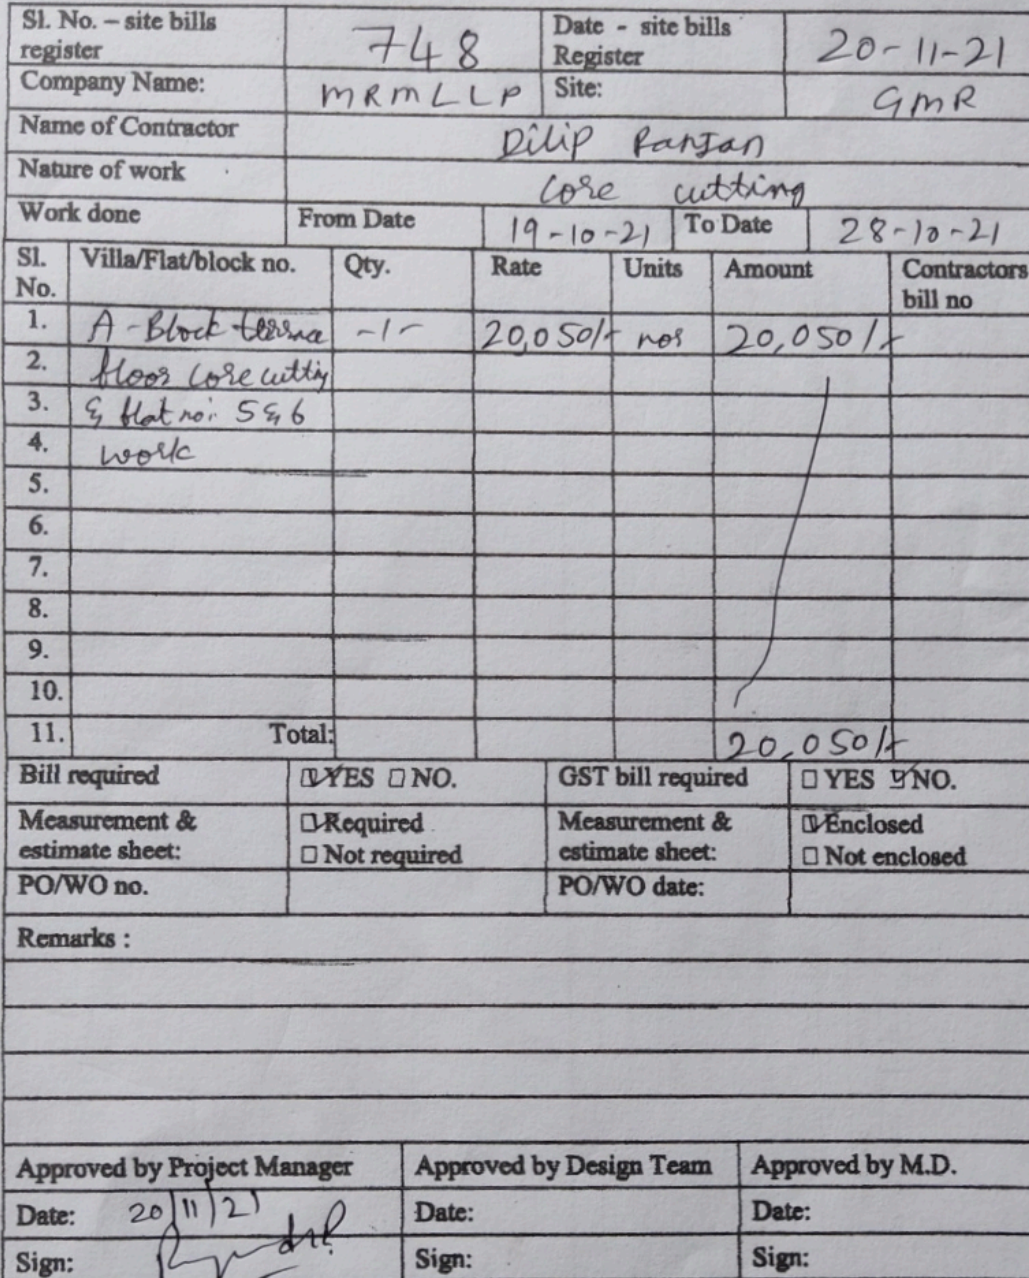 Sl. No. – site bills register 748 Date - site bills Register 20-11-21
Company Name: MRMLLP Site: GMR
Name of Contractor Dilip Ranjan
Nature of work Core cutting
Work done From Date 19-10-21 To Date 28-10-21
Sl. No. Villa/Flat/block no. Qty. Rate Units Amount Contractors bill no
1. A-Block terrace -1- 20,050/- nos 20,050/-
2. floor core cutting
3. & flat no: 5 & 6
4. work
5.
6.
7.
8.
9.
10.
11. Total: 20,050/-
Bill required YES NO. GST bill required YES NO.
Measurement & estimate sheet: Required Measurement & estimate sheet: Enclosed
Not required Not enclosed
PO/WO no. PO/WO date:
Remarks :
Approved by Project Manager Approved by Design Team Approved by M.D.
Date: 20/11/21 Date: Date:
Sign: Sign: Sign: